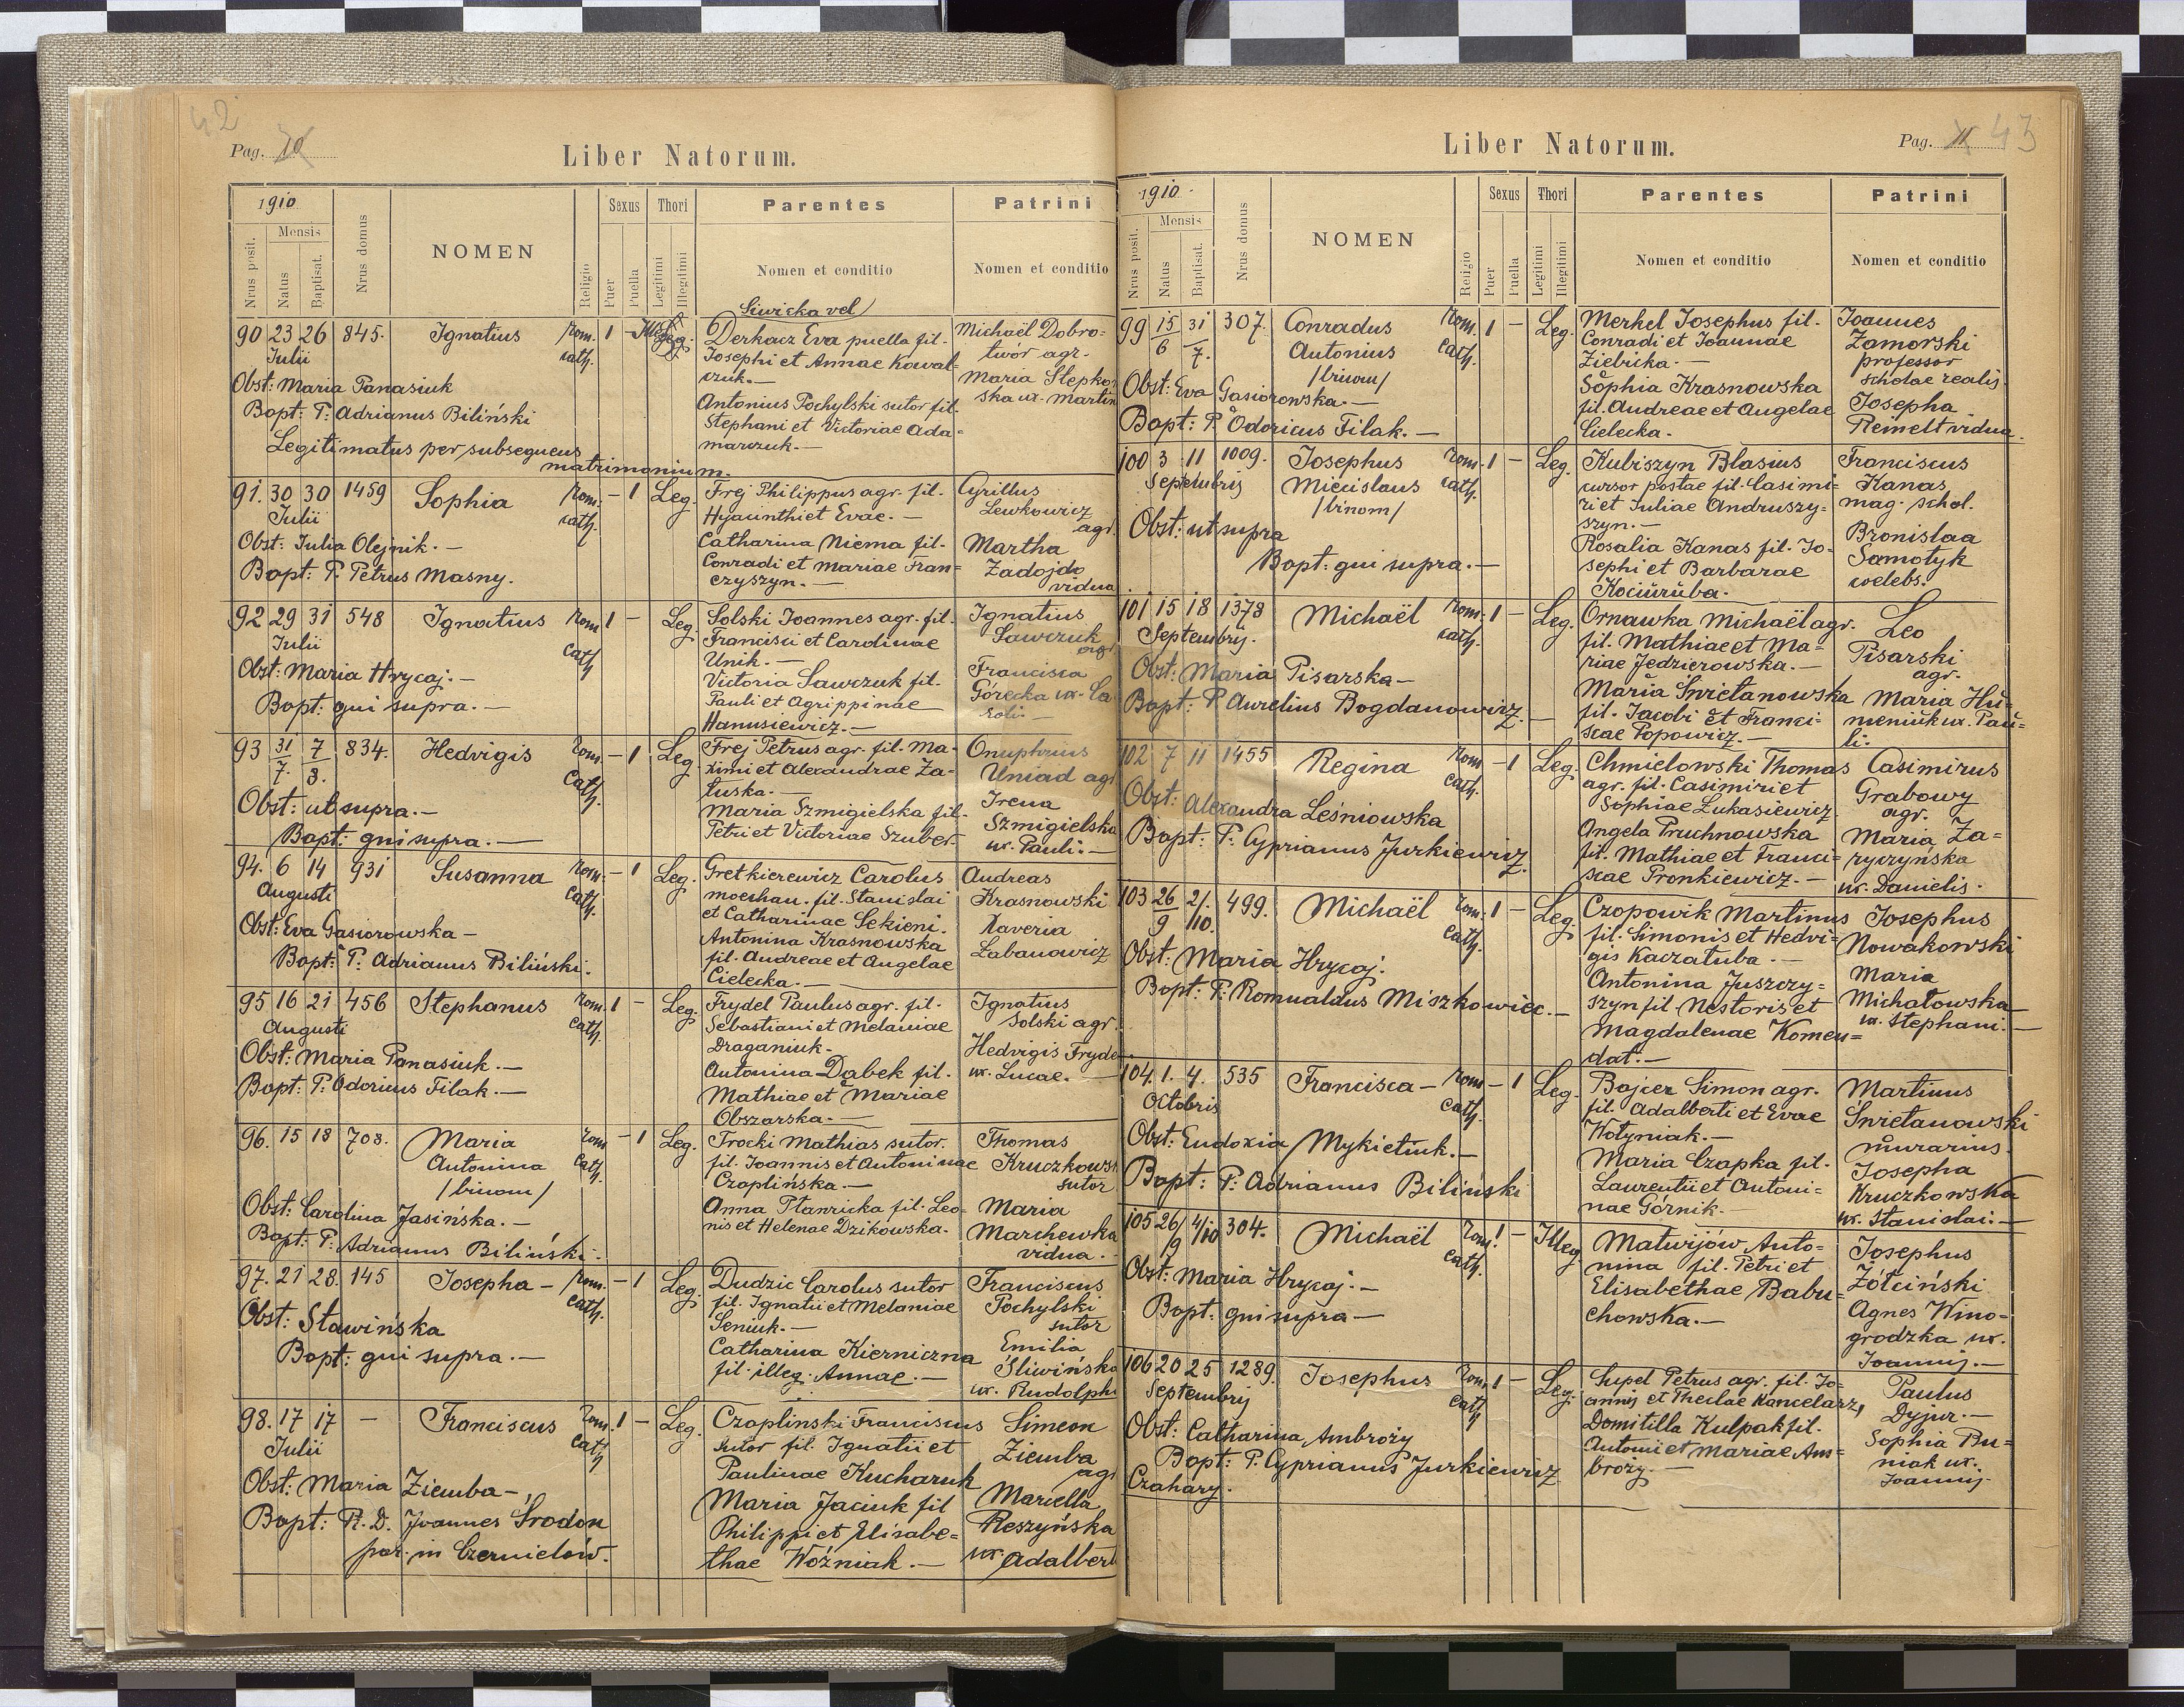 42
Pag. 10
Liber Natorum.
1910
Nrus posit.
Mensis
Natus
Baptisat.
Nrus domus
NOMEN
Religio
Sexus
Puer
Puella
Thori
Legitimi
Illegitimi
Parentes
Nomen et conditio
Patrini
Nomen et conditio
90 23 26 845. Ignatius Rom. 1 – Illeg. Leg.
Julii cath.
Obst: Maria Panasiuk
Bapt: P. Adrianus Biliński
Legitimatus per subsequens
matrimonium.
Siwicka vel
Derkacz Eva puella fil.
Josephi et Annae Kowal-
czuk.—
Antonius Pochylski sutor fil.
Stephani et Victoriae Ada-
marczuk.—
Michaël Dobro-
twór agr.
Maria Stepko
ska ux. Martin
91. 30 30 1459 Sophia Rom. – 1 Leg.
Julii cath.
Obst: Julia Olejnik.—
Bapt: P. Petrus Masny.
Frej Philippus agr. fil.
Hyacinthi et Evae.—
Catharina Niema fil.
Conradi et Mariae Fran-
czyszyn.—
Cyrillus
Lewkowicz
agr.
Martha
Zadojdo
vidua
92 29 31 548 Ignatius Rom. 1 – Leg.
Julii cath.
Obst: Maria Hrycaj.—
Bapt: qui supra.—
Solski Joannes agr. fil.
Francisci et Carolinae
Unik.—
Victoria Sawczuk fil.
Pauli et Agrippinae
Hanusiewicz.—
Ignatius
Sawczuk
agr
Francisca
Górecka ux. Ca
roli.—
93 31/7. 7/8. 834. Hedvigis Rom. – 1 Leg.
Cath.
Obst: ut supra.—
Bapt: qui supra.—
Frej Petrus agr. fil. Ma-
ximi et Alexandrae Za-
tuska.—
Maria Szmigielska fil.
Petri et Victoriae Szuber.
Onuphrius
Uniad agr
Irena
Szmigielska
ux. Pauli.—
94. 6 14 931 Susanna Rom. – 1 Leg.
Augusti Cath.
Obst: Eva Gąsiorowska —
Bapt: P. Adrianus Biliński.
Gretkierewicz Carolus
mechan. fil. Stanislai
et Catharinae Sekieni.
Antonina Krasnowska
fil. Andreae et Angelae
Cielecka.—
Andreas
Krasnowski
Xaveria
Labanowicz
95 16 21 456 Stephanus Rom. 1 – Leg.
Augusti cath.
Obst: Maria Panasiuk.—
Bapt: P. Odoricus Filak.—
Frydel Paulus agr. fil.
Sebastiani et Melaniae
Draganiuk.
Antonina Dąbek fil.
Mathiae et Mariae
Obszarska.—
Ignatius
Solski agr.
Hedvigis Fryde
ux. Lucae.—
96. 15 18 708. Maria Rom. – 1 Leg.
Antonina cath.
/binom/
Obst: Carolina Jasińska.—
Bapt: P. Adrianus Biliński.
Trocki Mathias sutor.
fil. Joannis et Antoninae
Czaplińska.—
Anna Pławicka fil. Leo-
nis et Helenae Dzikowska.
Thomas
Kruczkows
sutor
Maria
Marchewka
vidua.
97. 21 28. 145 Josepha – Rom. – 1 Leg.
cath.
Obst: Sławińska
Bapt: qui supra.—
Dudzic Carolus sutor
fil. Ignatii et Melaniae
Seniuk.—
Catharina Kierniczna
fil. illeg. Annae.—
Franciscus
Pochylski
sutor
Emilia
Śliwińska
ux. Rudolphi
98. 17 17 – Franciscus Rom. 1 – Leg.
Julii cath
Obst: Maria Ziemba –
Bapt: R. D. Joannes Środon
par. in Czernielów.
Czaplinski Franciscus
sutor fil. Ignatii et
Paulinae Kucharuk
Maria Jaciuk fil
Philippi et Elisabe-
thae Woźniak.—
Simeon
Ziemba
agr
Marcella
Reszyńska
ux. Adalbert
Liber Natorum.
Pag. 11 43
1910
Nrus posit.
Mensis
Natus
Baptisat.
Nrus domus
NOMEN
Religio
Sexus
Puer
Puella
Thori
Legitimi
Illegitimi
Parentes
Nomen et conditio
Patrini
Nomen et conditio
99 15/6 31/7. 307. Conradus Rom. 1 – Leg.
Antonius cath.
/binom/
Obst: Eva Gąsiorowska.—
Bapt: P. Odoricus Filak.—
Merkel Josephus fil.
Conradi et Joannae
Ziebicka.—
Sophia Krasnowska
fil. Andreae et Angelae
Cielecka.
Joannes
Zamorski
professor
scholae realis
Josepha
Remelt vidua.
100 3 11 1009. Josephus Rom. 1 – Leg.
Septembris Miecislaus cath.
/binom/
Obst: ut supra
Bapt: qui supra.—
Kubiszyn Blasius
cursor postae fil. Casimi-
ri et Juliae Andruszy-
szyn.—
Rosalia Kanas fil. Jo-
sephi et Barbarae
Kociuruba.
Franciscus
Kanas
mag. schol.
Bronislaa
Samotyk
coelebs.
101 15 18 1378 Michaël Rom. 1 – Leg.
Septembris. cath.
Obst: Maria Pisarska —
Bapt: P. Aurelius Bogdanowicz.—
Ornawka Michaël agr.
fil. Mathiae et Ma-
riae Jedzierowska.—
Maria Świetanowska
fil. Jacobi et Franci-
scae Popowicz.—
Leo
Pisarski
agr.
Maria Hu-
meniuk ux. Pau-
li.
102 7 11 1455 Regina Rom. – 1 Leg.
cath.
Obst: Alexandra Leśniowska
Bapt: P. Cyprianus Jurkiewicz.
Chmielowski Thomas
agr. fil. Casimiri et
Sophiae Łukasiewicz.
Angela Pruchnowska
fil. Mathiae et Franci-
scae Pronkiewicz.—
Casimirus
Grabowy
agr.
Maria Za-
ryczyńska
ux. Danielis.
103 26/9 2/10. 499. Michaël Rom. 1 – Leg.
cath.
Obst: Maria Hrycaj.
Bapt: P. Romualdus Miszkowiec.—
Czopowik Martinus
fil. Simonis et Hedvi-
gis Kaczałuba.—
Antonina Juszczy-
szyn fil Nestoris et
Magdalenae Komen-
dat.—
Josephus
Nowakowski
Maria
Michałowska
ux. Stephani.—
104. 1. 4. 535 Francisca – Rom – 1 Leg.
Octobris cath.
Obst: Eudoxia Mykietiuk.—
Bapt: P. Adrianus Biliński
Bajcer Simon agr.
fil. Adalberti et Evae
Wołyniak.—
Maria Czapka fil.
Laurentii et Antoni-
nae Górnik.
Martinus
Świetanowski
murarius.
Josepha
Kruczkowska
ux. Stanislai.—
105 26/9 4/10 304. Michaël Rom. 1 – Illeg.
cath.
Obst: Maria Hrycaj.—
Bapt: qui supra —
Matwijów Anto-
nina fil. Petri et
Elisabethae Babu-
chowska.—
Josephus
Żółciński
Agnes Wino-
grodzka ux.
Joannis.—
106 20 25 1289. Josephus Rom. 1 – Leg.
Septembris cath
Obst: Catharina Ambroży
Bapt: P. Cyprianus Jurkiewicz
Czahary.
Supel Petrus agr. fil. Jo-
annis et Theclae Kancelarz,
Domitilla Kulpak fil.
Antoni et Mariae Am-
broży.—
Paulus
Dyjur.—
Sophia Bu-
niak ux.
Joannis